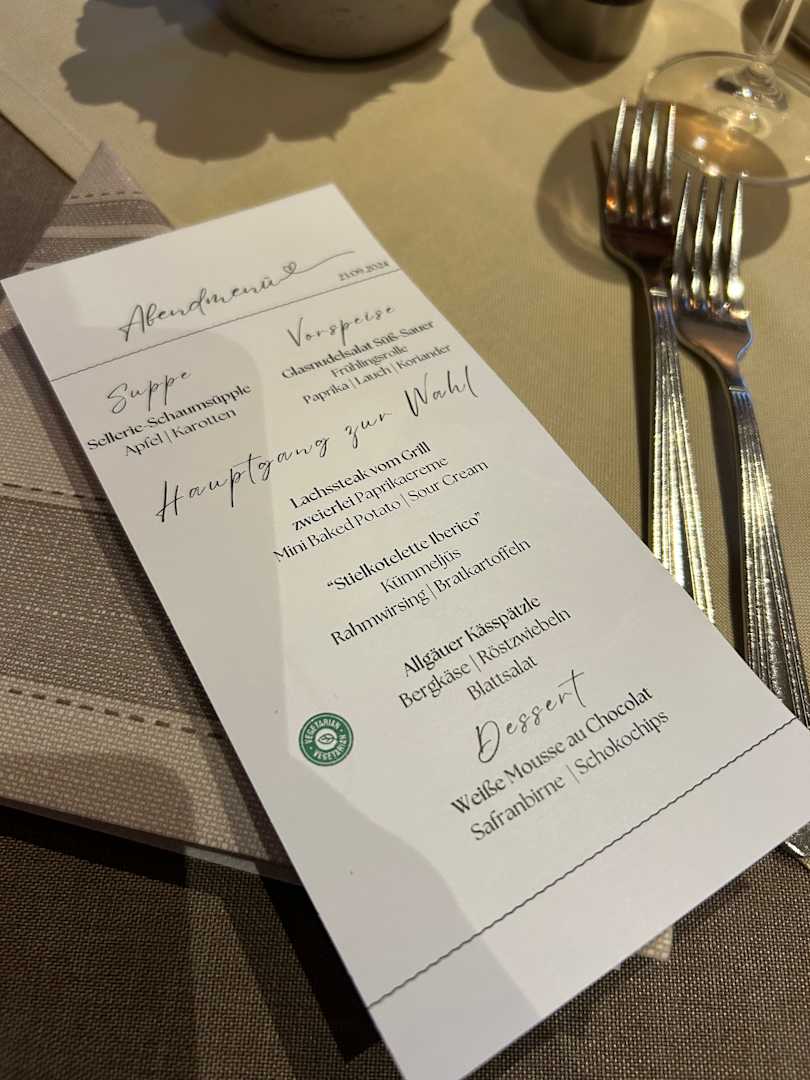 Abendmenü
21.09.2024
Suppe
Sellerie-Schaumsüpple
Apfel | Karotten
Vorspeise
Glasnudelsalat Süß-Sauer
Frühlingsrolle
Paprika | Lauch | Koriander
Hauptgang zur Wahl
Lachssteak vom Grill
zweierlei Paprikacreme
Mini Baked Potato | Sour Cream
“Stielkotelette Iberico”
Kümmeljüs
Rahmwirsing | Bratkartoffeln
Allgäuer Kässpätzle
Bergkäse | Röstzwiebeln
Blattsalat
VEGETARIAN
VEGETARIAN
Dessert
Weiße Mousse au Chocolat
Safranbirne | Schokochips